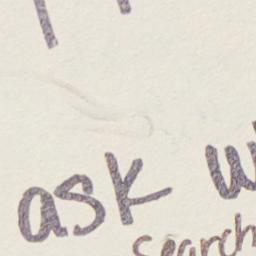 ask
search